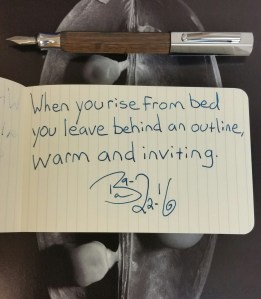 When you rise from bed
you leave behind an outline,
warm and inviting.